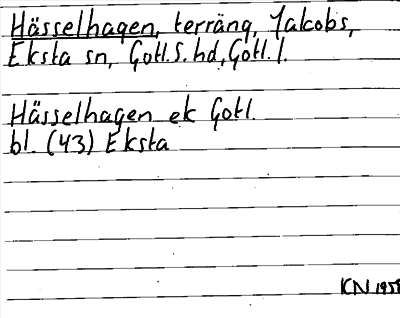 Hässelhagen, terräng, Jakobs,
Eksta sn, Gotl.S.hd, Gotl.l.
Hässelhagen ek Gotl.
bl. (43) Eksta
KN 195